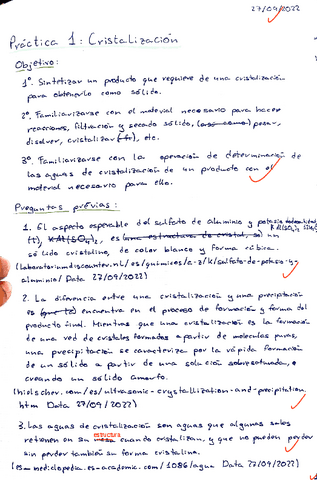 27/09/2022
Práctica 1: Cristalización
Objetivo:
1º. Sintetizar un producto que requiere de una cristalización
para obtenerlo como sólido.
2º. Familiarizarse con el material necesario para hacer
reacciones, filtración y secado sólido, pesar,
disolver, cristalizar, etc.
3º. Familiarizarse con la operación de determinación de
las aguas de cristalización de un producto con el
material necesario para ello.
Preguntas previas:
1. El aspecto esperable del sulfato de aluminio y potasio
KAl(SO₄)₂, es un
sólido cristalino, de color blanco y forma cúbica.
(laboratoriumdiscounter.nl/es/quimicos/a-z/k/sulfato-de-potasio-y-
aluminio/ Data 27/09/2022)
2. La diferencia entre una cristalización y una precipitación
es encuentra en el proceso de formación y forma del
producto final. Mientras que una cristalización es la formación
de una red de cristales formados a partir de moléculas puras,
una precipitación se caracteriza por la rápida formación
de un sólido a partir de una solución sobresaturada, o
creando un sólido amorfo.
(hielscher.com/es/ultrasonic-crystallization-and-precipitation.
htm Data 27/09/2022)
3. Las aguas de cristalización son aguas que algunas sales
retienen en su estructura cuando cristalizan, y que no pueden perder
sin perder también su forma cristalina.
(es-mediclopedia.es-academic.com/1086/agua Data 27/09/2022)